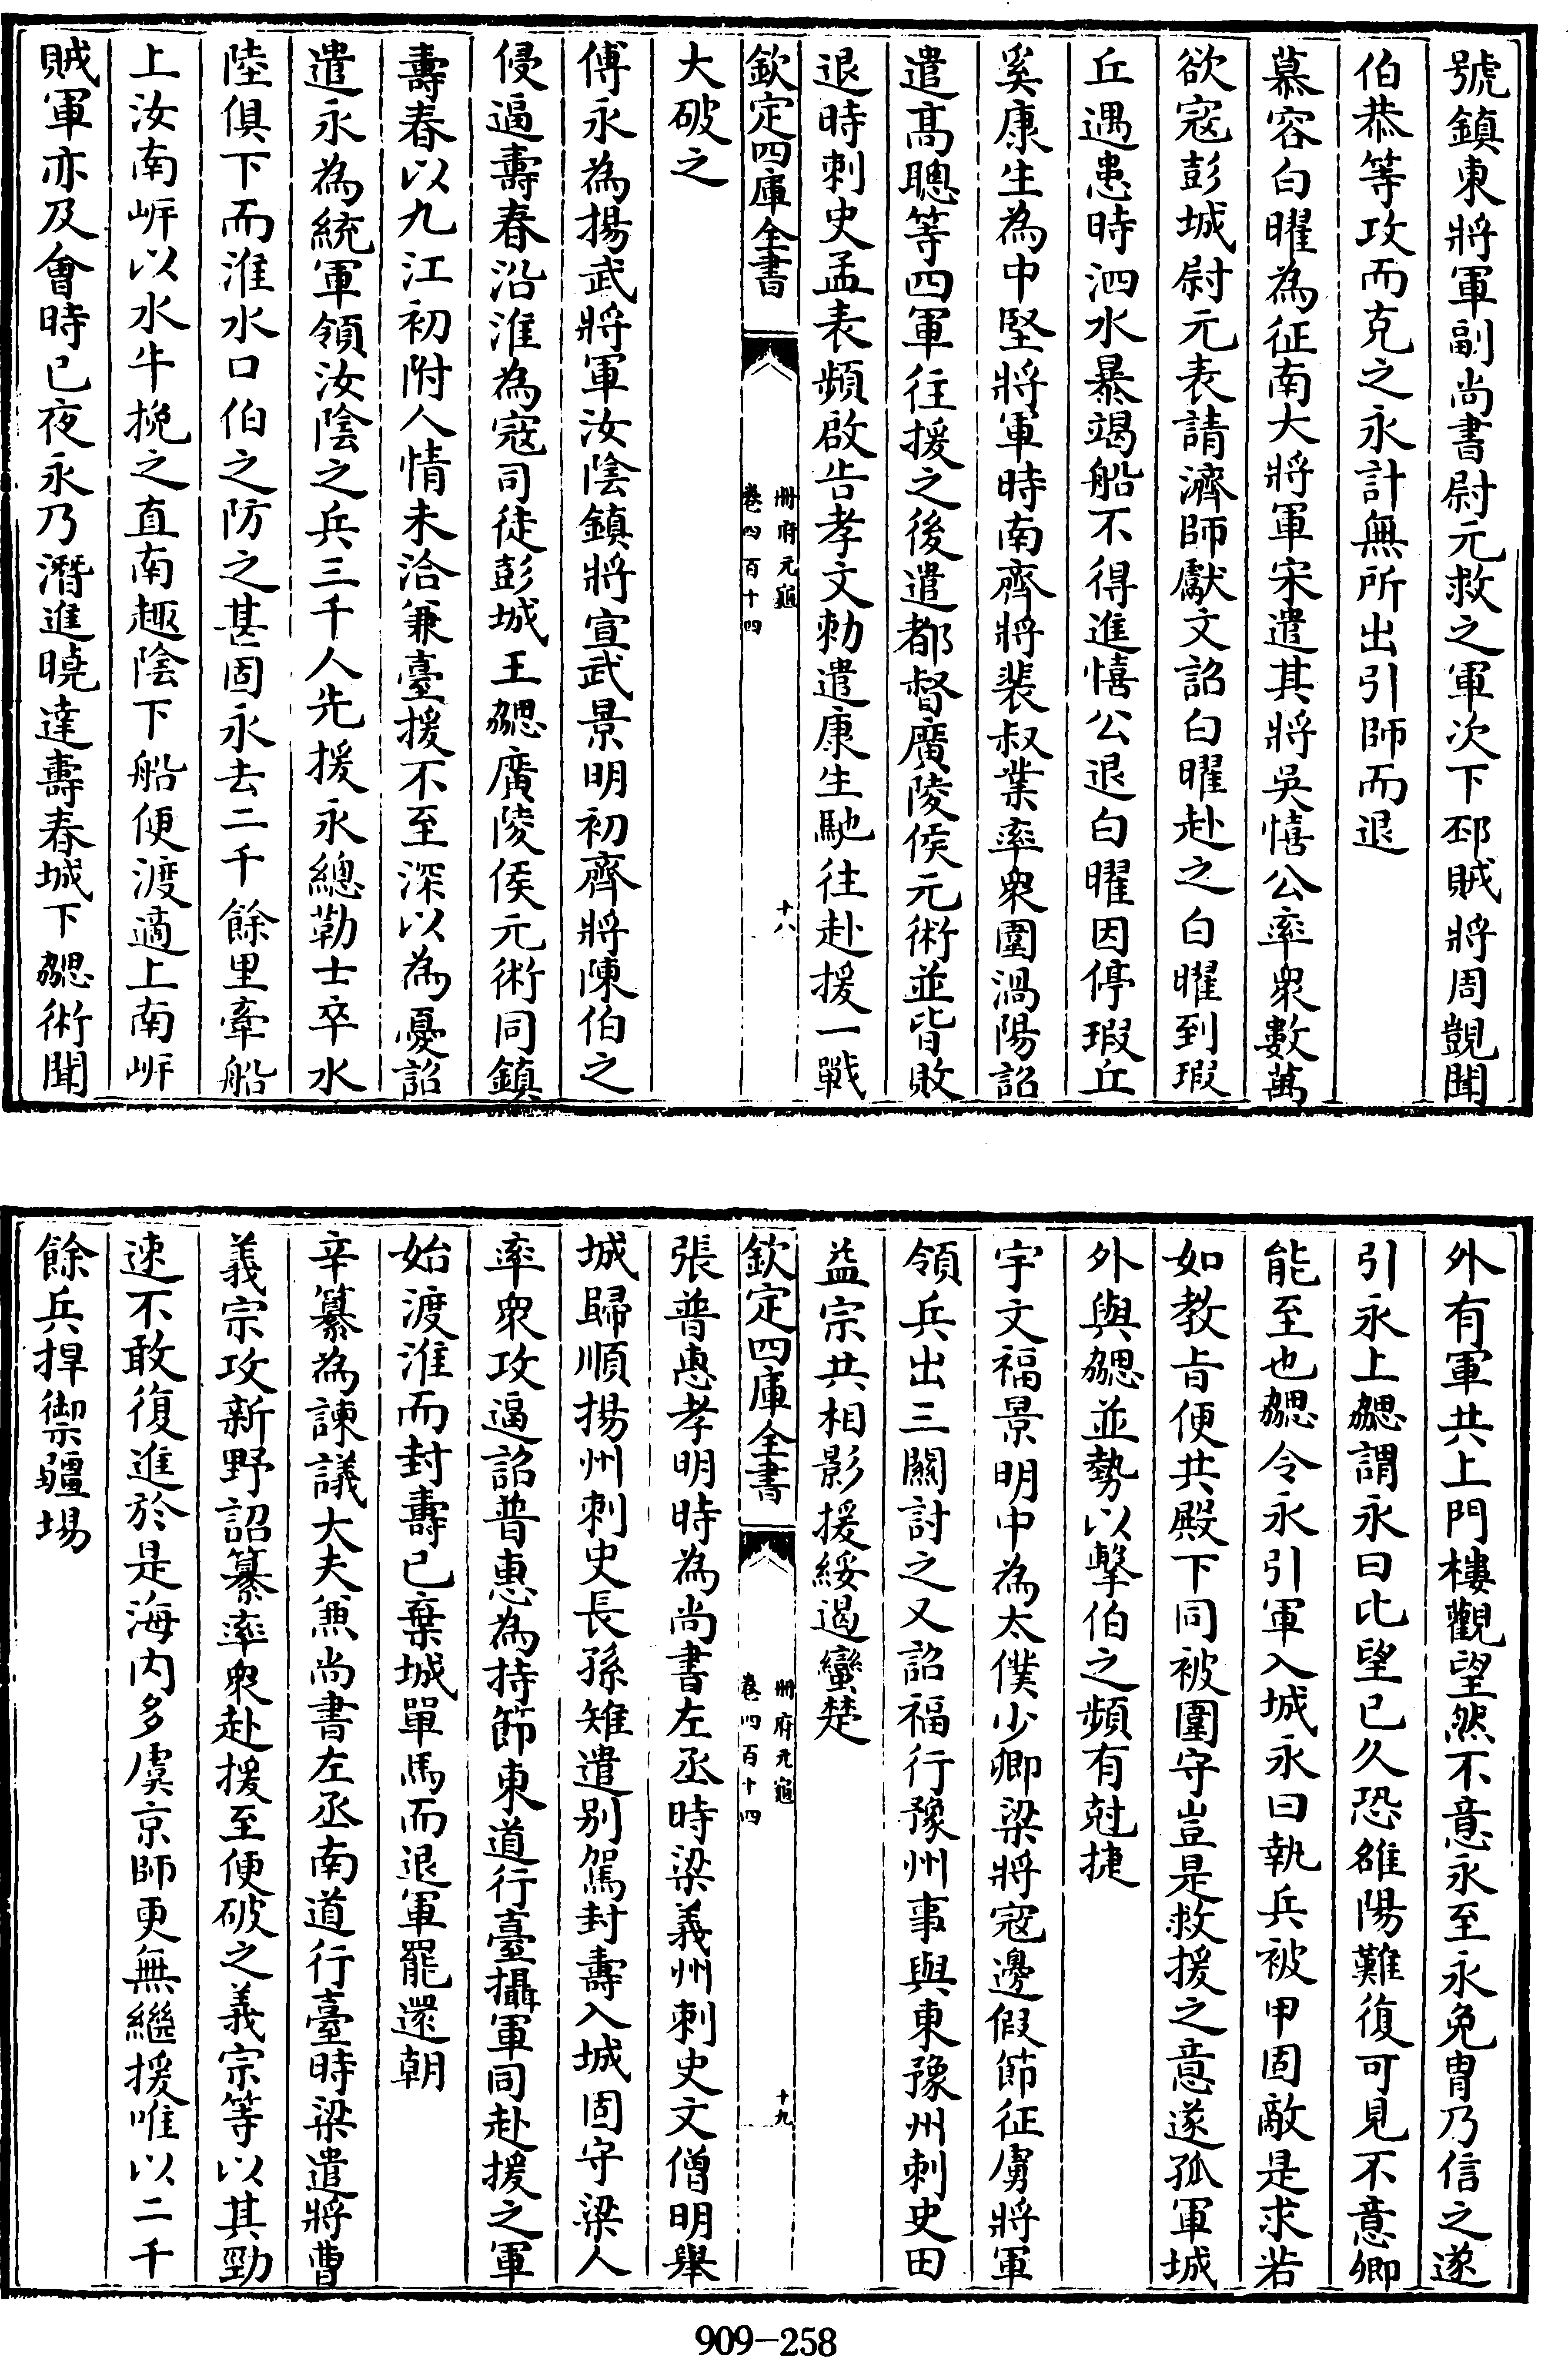 號鎮東將軍副尚書尉元救之軍次下邳賊將周覬聞
伯恭等攻而克之永計無所出引師而退
慕容白曜為征南大將軍宋遣其將吳憘公率衆數萬
欲寇彭城尉元表請濟師獻文詔白曜赴之白曜到瑕
丘遇患時泗水暴竭船不得進憘公退白曜因停瑕丘
奚康生為中堅將軍時南齊將裴叔業率衆圍渦陽詔
遣髙聰等四軍往援之後遣都督廣陵侯元衍並皆敗
退時刺史孟表頻啟告孝文勅遣康生馳往赴援一戰
欽定四庫全書
冊府元龜
卷四百十四
十八
大破之
傅永為揚武將軍汝陰鎮將宣武景明初齊將陳伯之
侵逼壽春沿淮為寇司徒彭城王勰廣陵侯元衍同鎮
壽春以九江初附人情未洽兼臺援不至深以為憂詔
遣永為統軍領汝陰之兵三千人先援永總勒士卒水
陸俱下而淮水口伯之防之甚固永去二千餘里牽船
上汝南岍以水牛挽之直南趣陰下船便渡適上南岍
賊軍亦及會時已夜永乃潛進曉達壽春城下勰衍聞
外有軍共上門樓觀望然不意永至永免胄乃信之遂
引永上勰謂永曰比望已久恐雒陽難復可見不意卿
能至也勰令永引軍入城永曰執兵被甲固敵是求若
如教旨便共殿下同被圍守豈是救援之意遂孤軍城
外與勰並勢以擊伯之頻有尅捷
宇文福景明中為太僕少卿梁將寇邊假節征虜將軍
領兵出三關討之又詔福行豫州事與東豫州刺史田
益宗共相影援綏遏蠻楚
欽定四庫全書
冊府元龜
卷四百十四
十九
張普惠孝明時為尚書左丞時梁義州刺史文僧明舉
城歸順揚州刺史長孫雉遣别駕封壽入城固守梁人
率衆攻逼詔普惠為持節東道行臺攝軍同赴援之軍
始渡淮而封壽已棄城單馬而退軍罷還朝
辛纂為諫議大夫兼尚書左丞南道行臺時梁遣將曹
義宗攻新野詔纂率衆赴援至便破之義宗等以其勁
速不敢復進於是海内多虞京師更無繼援唯以二千
餘兵捍禦疆埸
909-258